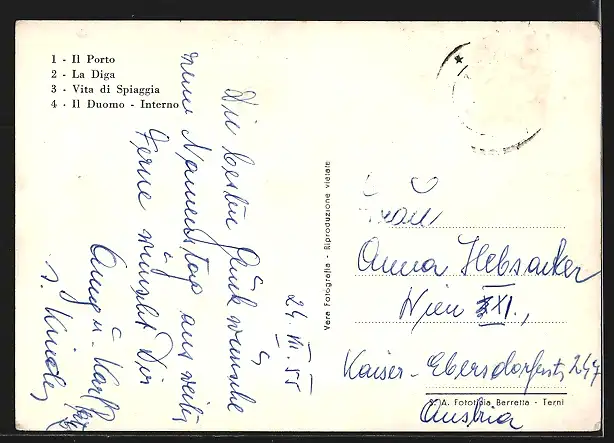 1 - Il Porto
2 - La Diga
3 - Vita di Spiaggia
4 - Il Duomo - Interno
24. VII. 55
Die besten Glückwünsche
zum Namenstag aus weiter
Ferne wünscht Dir
Anny u. Karl
u. Kinder
Vera Fotografia - Riproduzione vietata
Frau
Anna Hebsacker
Wien XI.,
Kaiser-Ebersdorferstr. 247
Austria
S. A. Fototipia Berretta - Terni